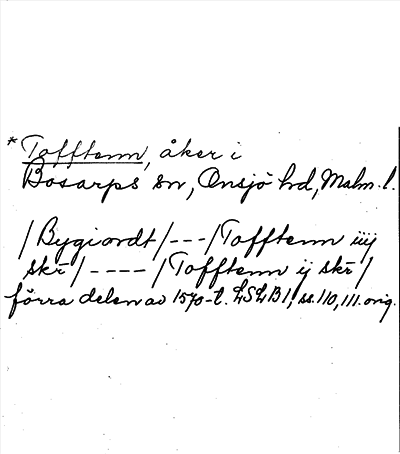 *Tofftenn, åker i
Bosarps sn, Onsjö hd, Malm. l.
/Bygiordt/---/Tofftenn iiij
skr/----/Tofftenn ij skr/
förra delen av 1570-t. LSLB1, ss. 110, 111. orig.